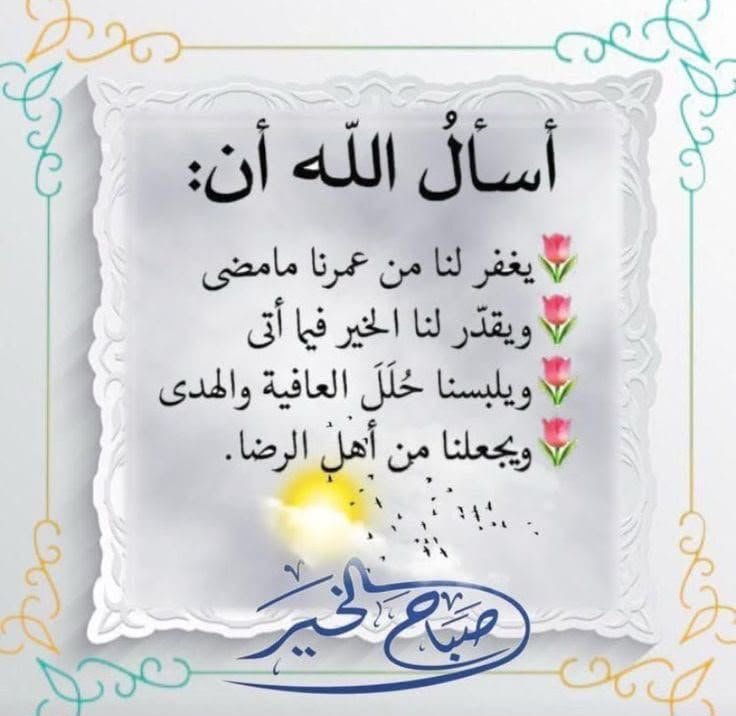 أسألُ اللّه أن:
🌷يغفر لنا من عمرنا مامضى
🌷ويقدّر لنا الخير فيما أتى
🌷ويلبسنا حُلَلَ العافية والهدى
🌷ويجعلنا من أهل الرضا.
صباح الخير